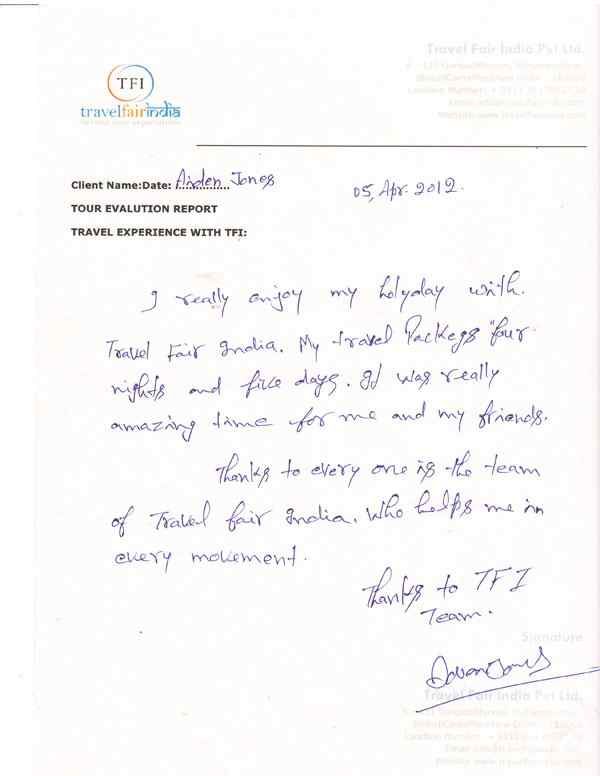 Travel Fair India Pvt Ltd.
TFI
travelfairindia
Client Name:Date: Aiden Jones
05, Apr. 2012.
TOUR EVALUTION REPORT
TRAVEL EXPERIENCE WITH TFI:
I really enjoy my holyday with.
Travel Fair India. My travel Packegs "four
nights and five days. It was really
amazing time for me and my friends.
Thanks to every one is the team
of Travel fair India. Who helps me in
every mokement.
Thanks to TFI
Team.
Signature
Travel Fair India Pvt Ltd.